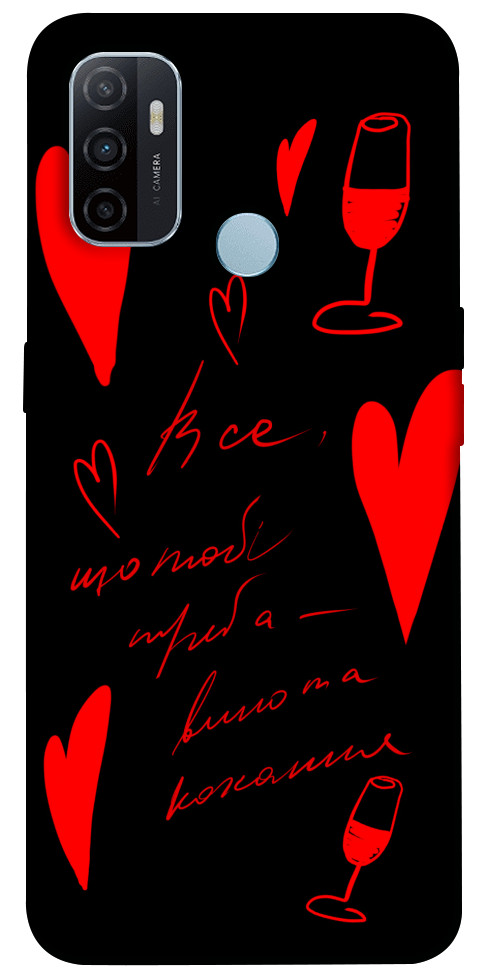 AI CAMERA
Все,
що тобі
треба —
вино та
кохання